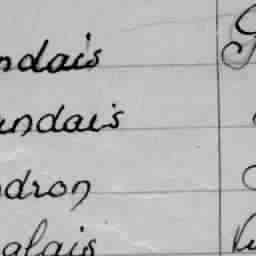 ndais
andais
dron
glais